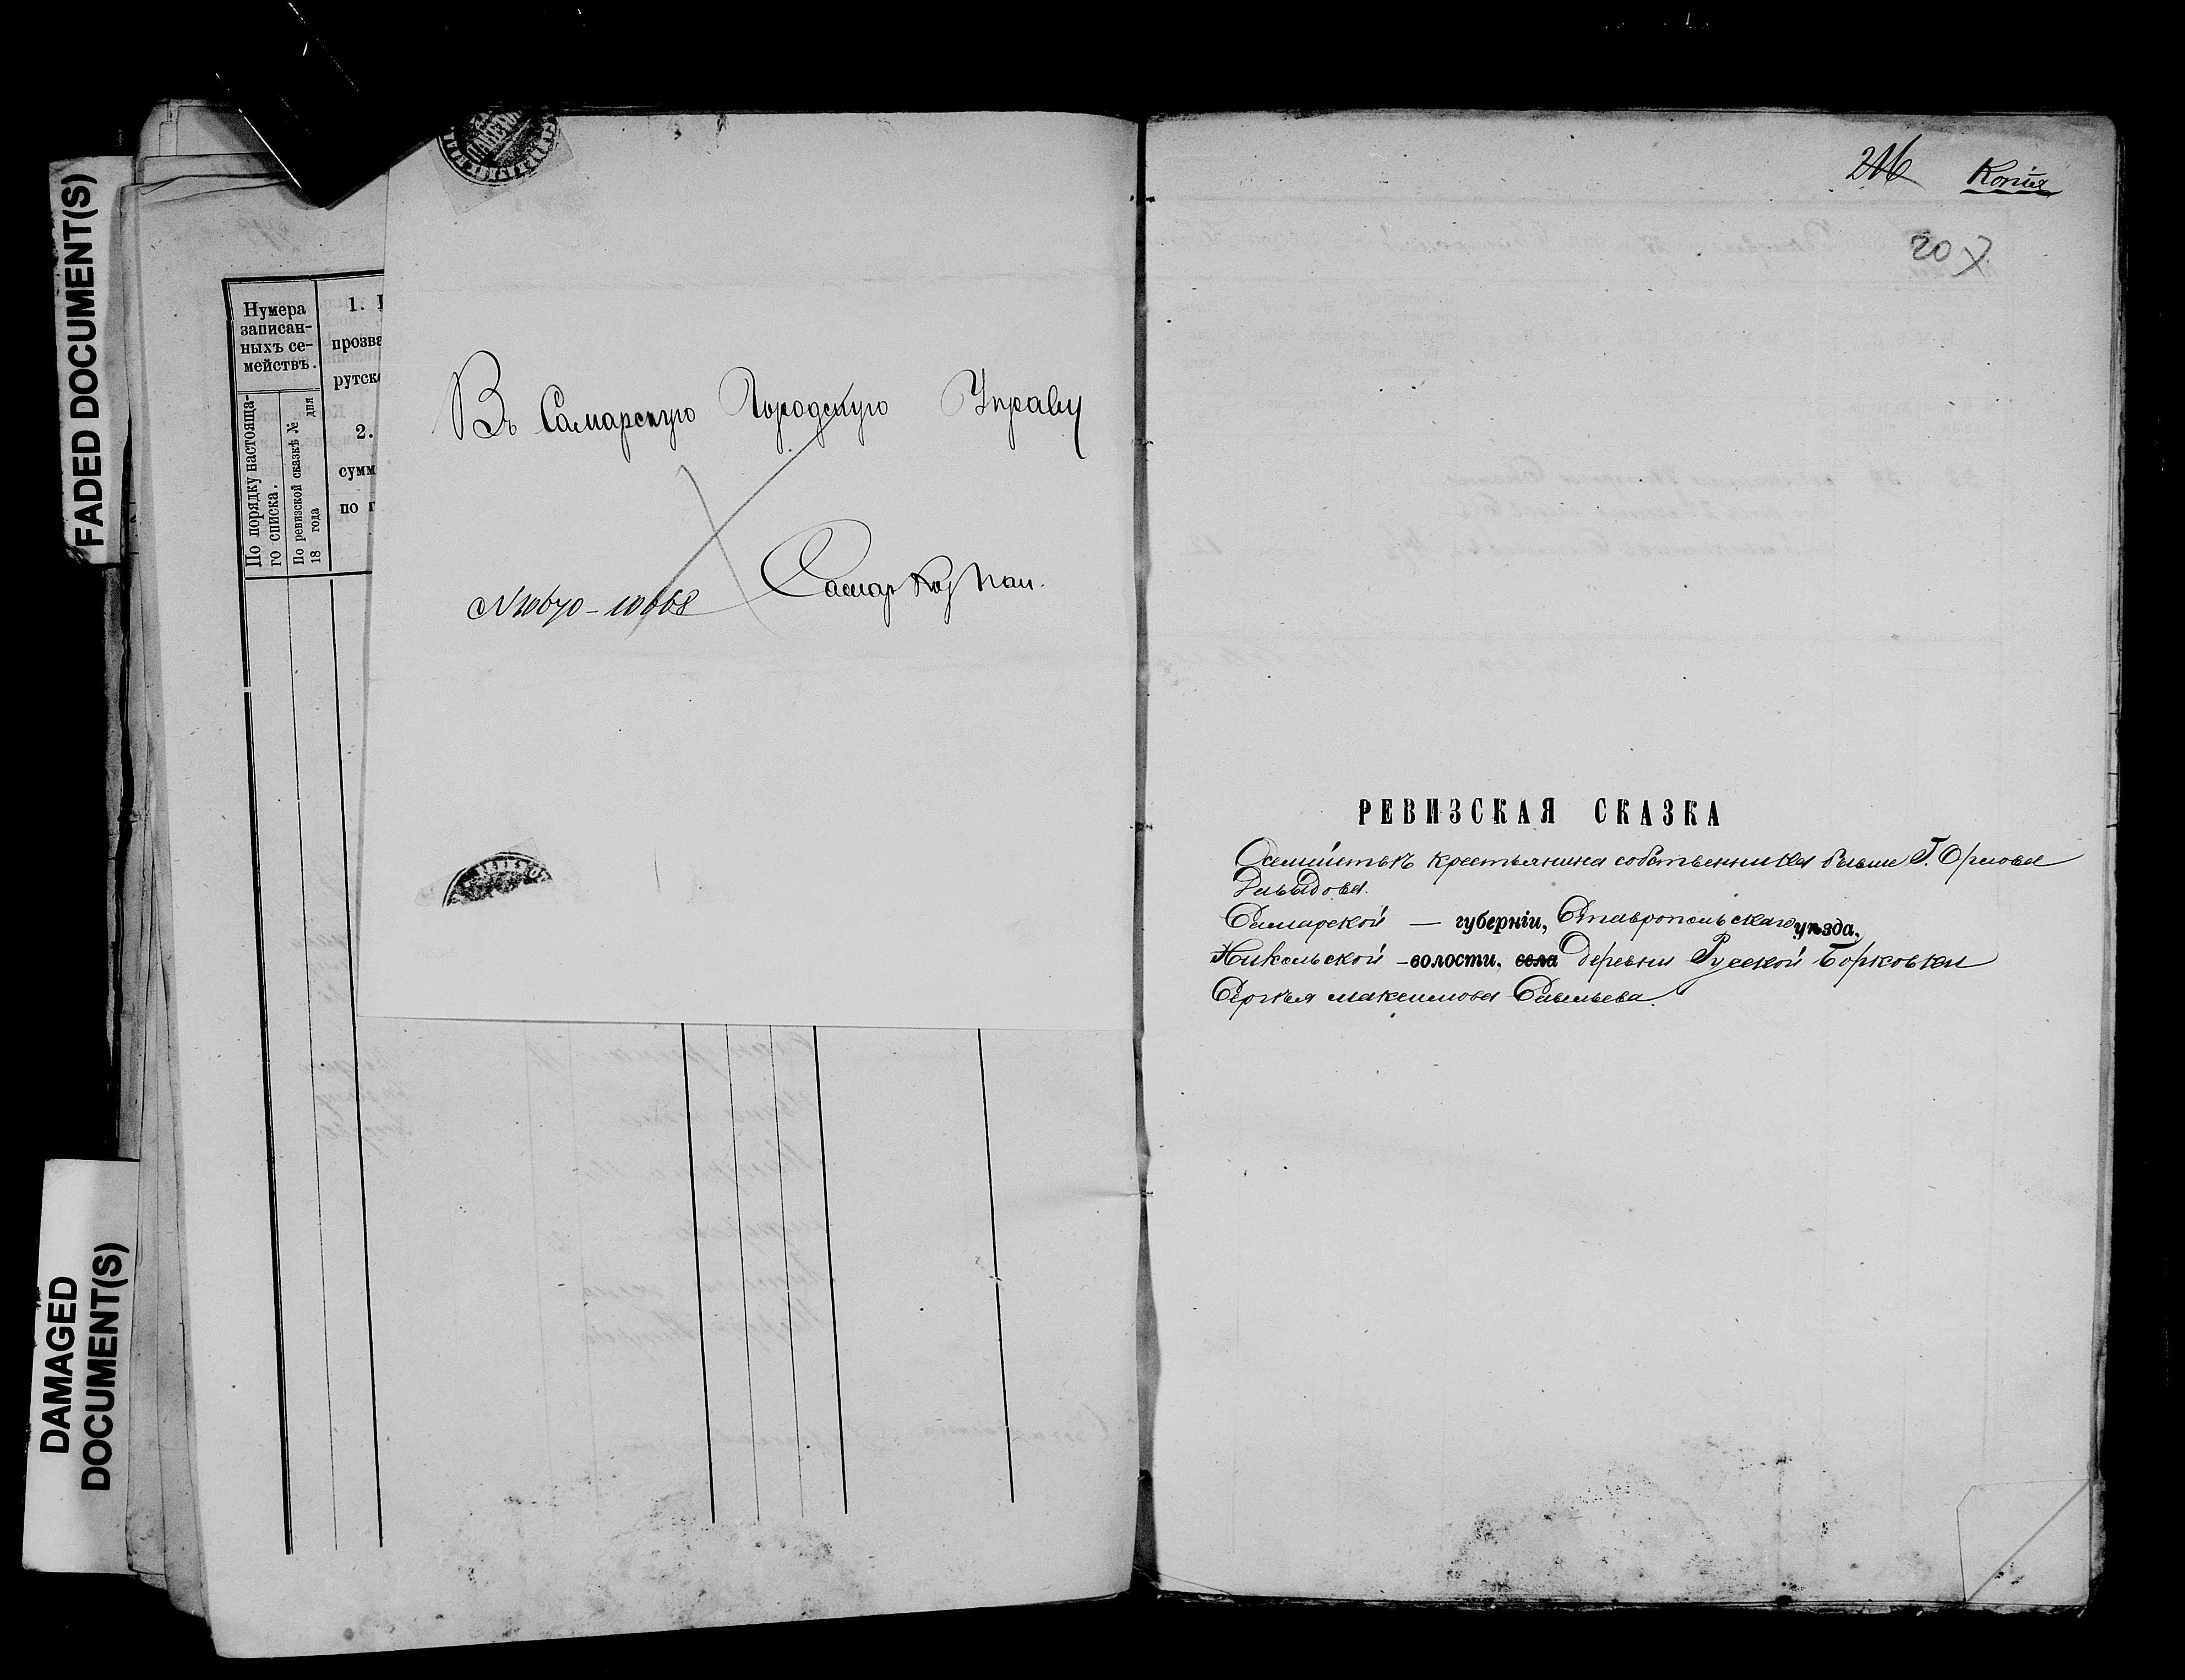 FADED DOCUMENT(S)
DAMAGED
DOCUMENT(S)
Нумера
записан-
ныхъ се-
мействъ.
По порядку настояща-
го списка.
По ревизской сказкѣ №
18 года дня
1.
прозва
рутск
2.
сумм
по г
Въ Самарскую Городскую Управу
№ 10670 - 10668
216 Копія
207
РЕВИЗСКАЯ СКАЗКА
О семействѣ крестьянина собственника бывше Г. Орлова
Давыдова.
Самарской — губерніи, Ставропольскаго уѣзда,
Никольской - волости, села деревни Русской Борковки
Сергѣя Максимова Савельева.